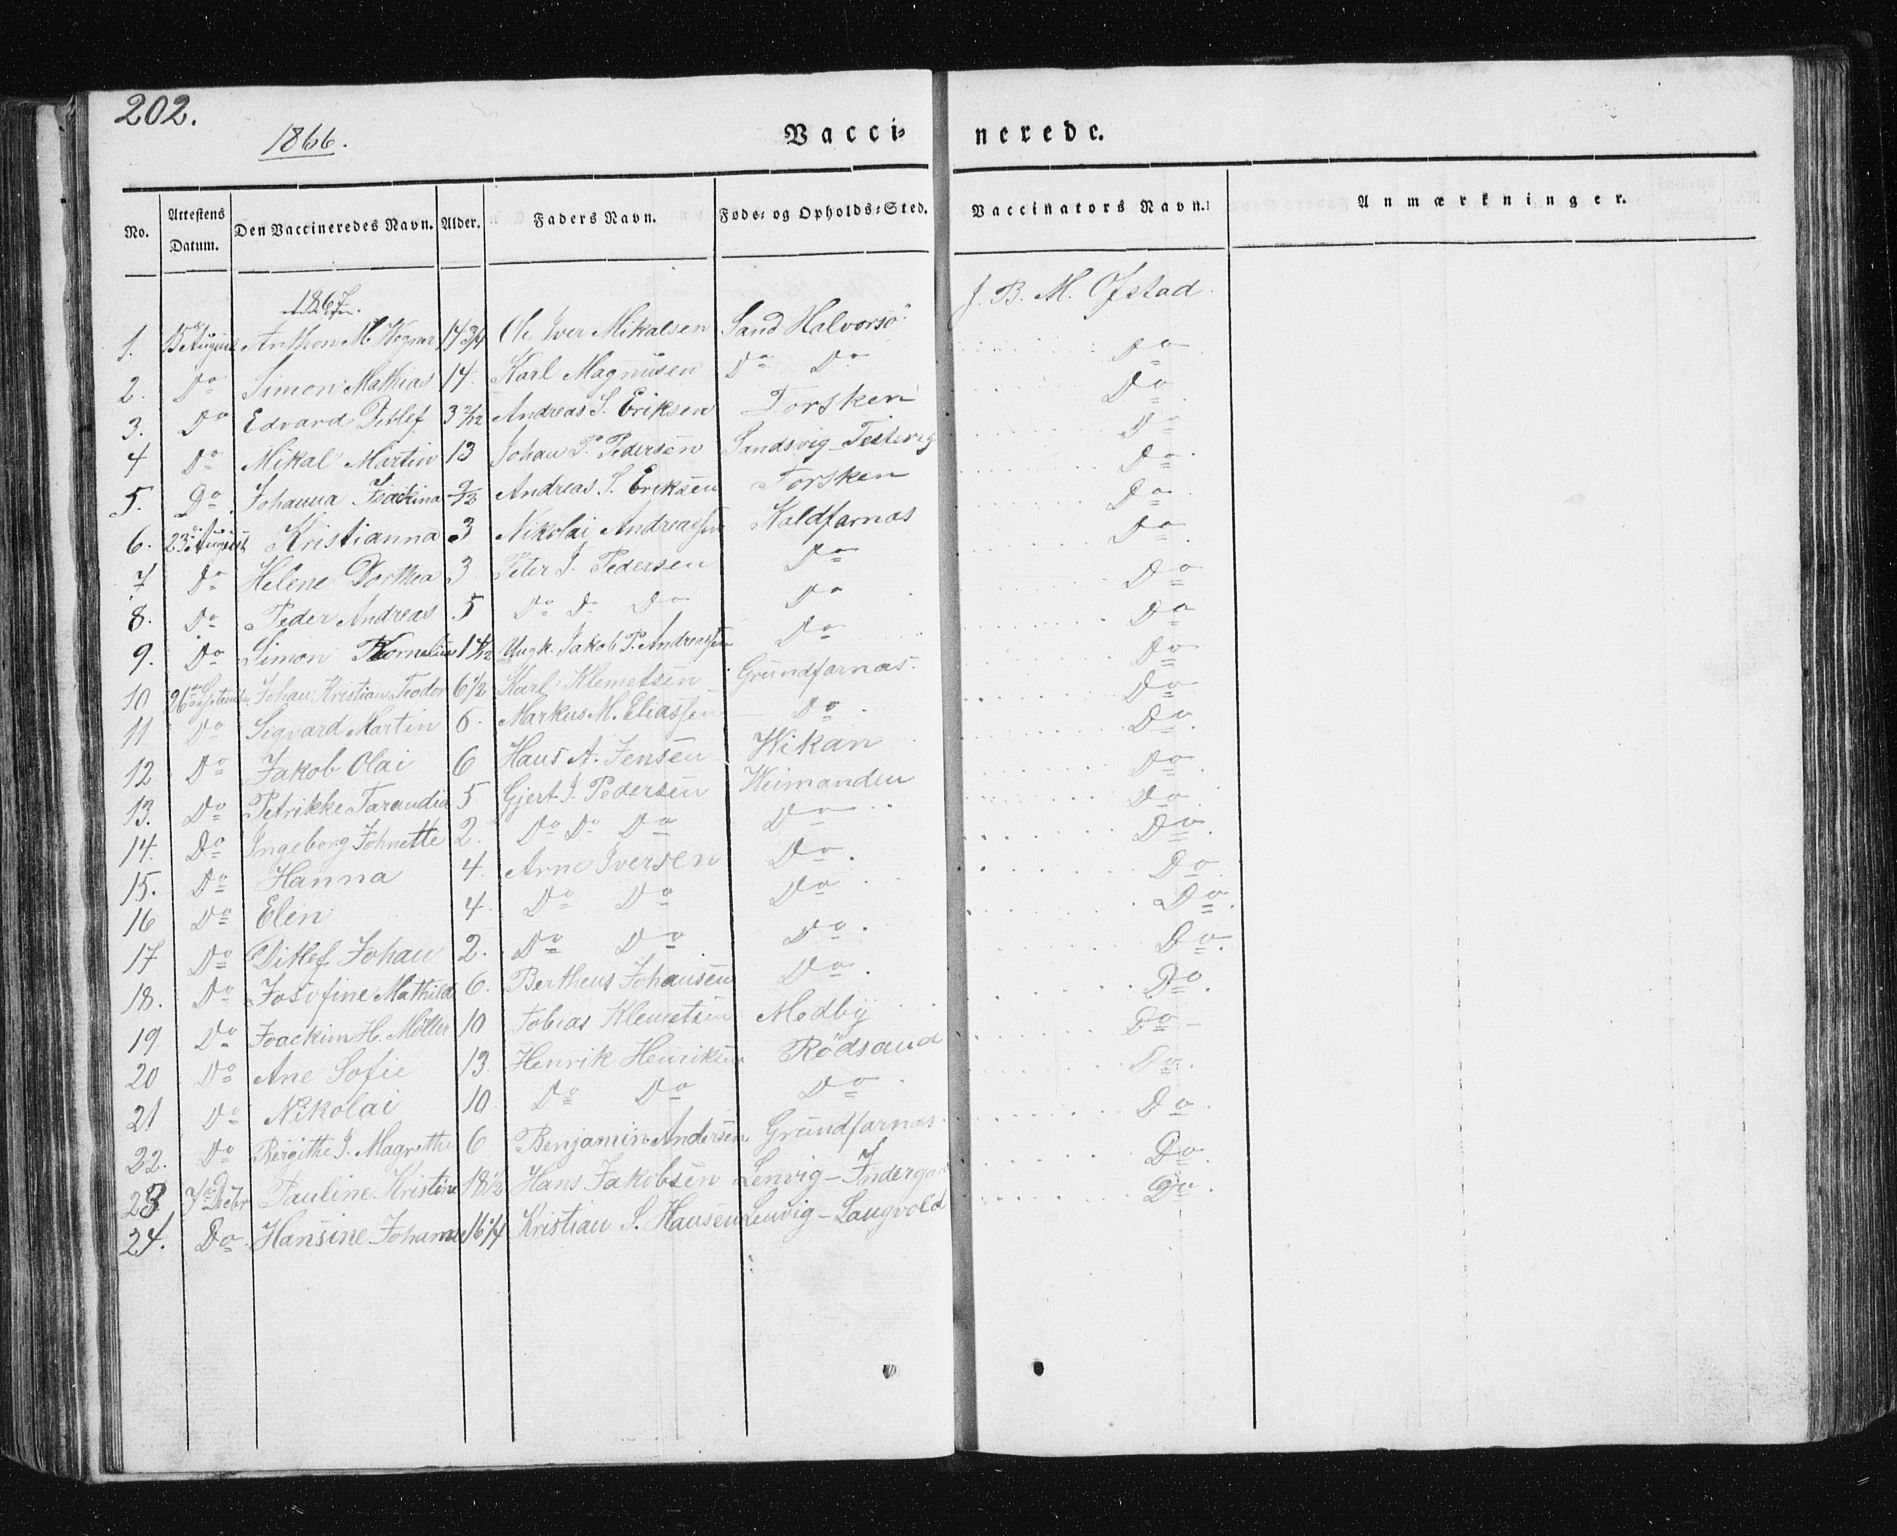 202.
1866.
Vacci- nerede.
No. Attestens Datum. Den Vaccineredes Navn. Alder. Faders Navn. Føde- og Opholds-Sted. Vaccinators Navn. Anmærkninger.
1867.
1. 15de August Anthon M. 14 3/4 Ole Iver Mikalsen Sand Halvorsö J. B. M. Ofstad.
2. Do Simon Mathias 14. Karl Magnusen Do Do Do
3. Do Edvard Ditlef 3 2/12 Andreas S. Eriksen Torsken Do
4 Do Mikal Martin 13 Johan P. Pedersen Sandsvig Do
5. Do Johanna Andreas S. Eriksen Torsken Do
6. 23de August Kristianna 3 Nikolai Andreassen Kaldfarnæs Do
7 Do Helene Dorthea 3 Peter J. Pedersen Do Do
8. Do Peder Andreas 5 Do Do Do Do Do
9. Do Simon Kornelius Ungk. Jakob P. Andreassen Do Do
10 26de September Johan Kristian Teodor 6 1/2 Karl Klemetsen Grundfarnæs. Do
11 Do Sigvard Martin 6. Markus M. Eliassen Do Do
12 Do Jakob Olai 6 Hans A. Jensen Wikan Do
13. Do Petrikke Tarandia 5 Gjert J. Pedersen Weimanden Do
14. Do Ingeborg Johnette 2. Do Do Do Do Do
15. Do Hanna 4. Arne Iversen Do Do
16 Do Elen 4 Do Do Do Do
17 Do Ditlef Johan 2. Do Do Do Do
18. Do Josefine Mathild 6. Bertheus Johansen Do Do
19 Do Joackim H. Möller 10 Tobias Klemetsen Medby Do
20 Do Ane Sofie 13. Henrik Henriksen Rödsand Do
21 Do Nikolai 10 Do Do Do Do
22. Do Birgithe J. Magrethe 6 Benjamin Andersen Grundfarnæs. Do
23 7de Decbr Pauline Kristine 18 1/2 Hans Jakobsen Lenvig - Do
24. Do Hansine Johanne 16 1/4 Kristian S. Hansen Lenvig - Langvold Do